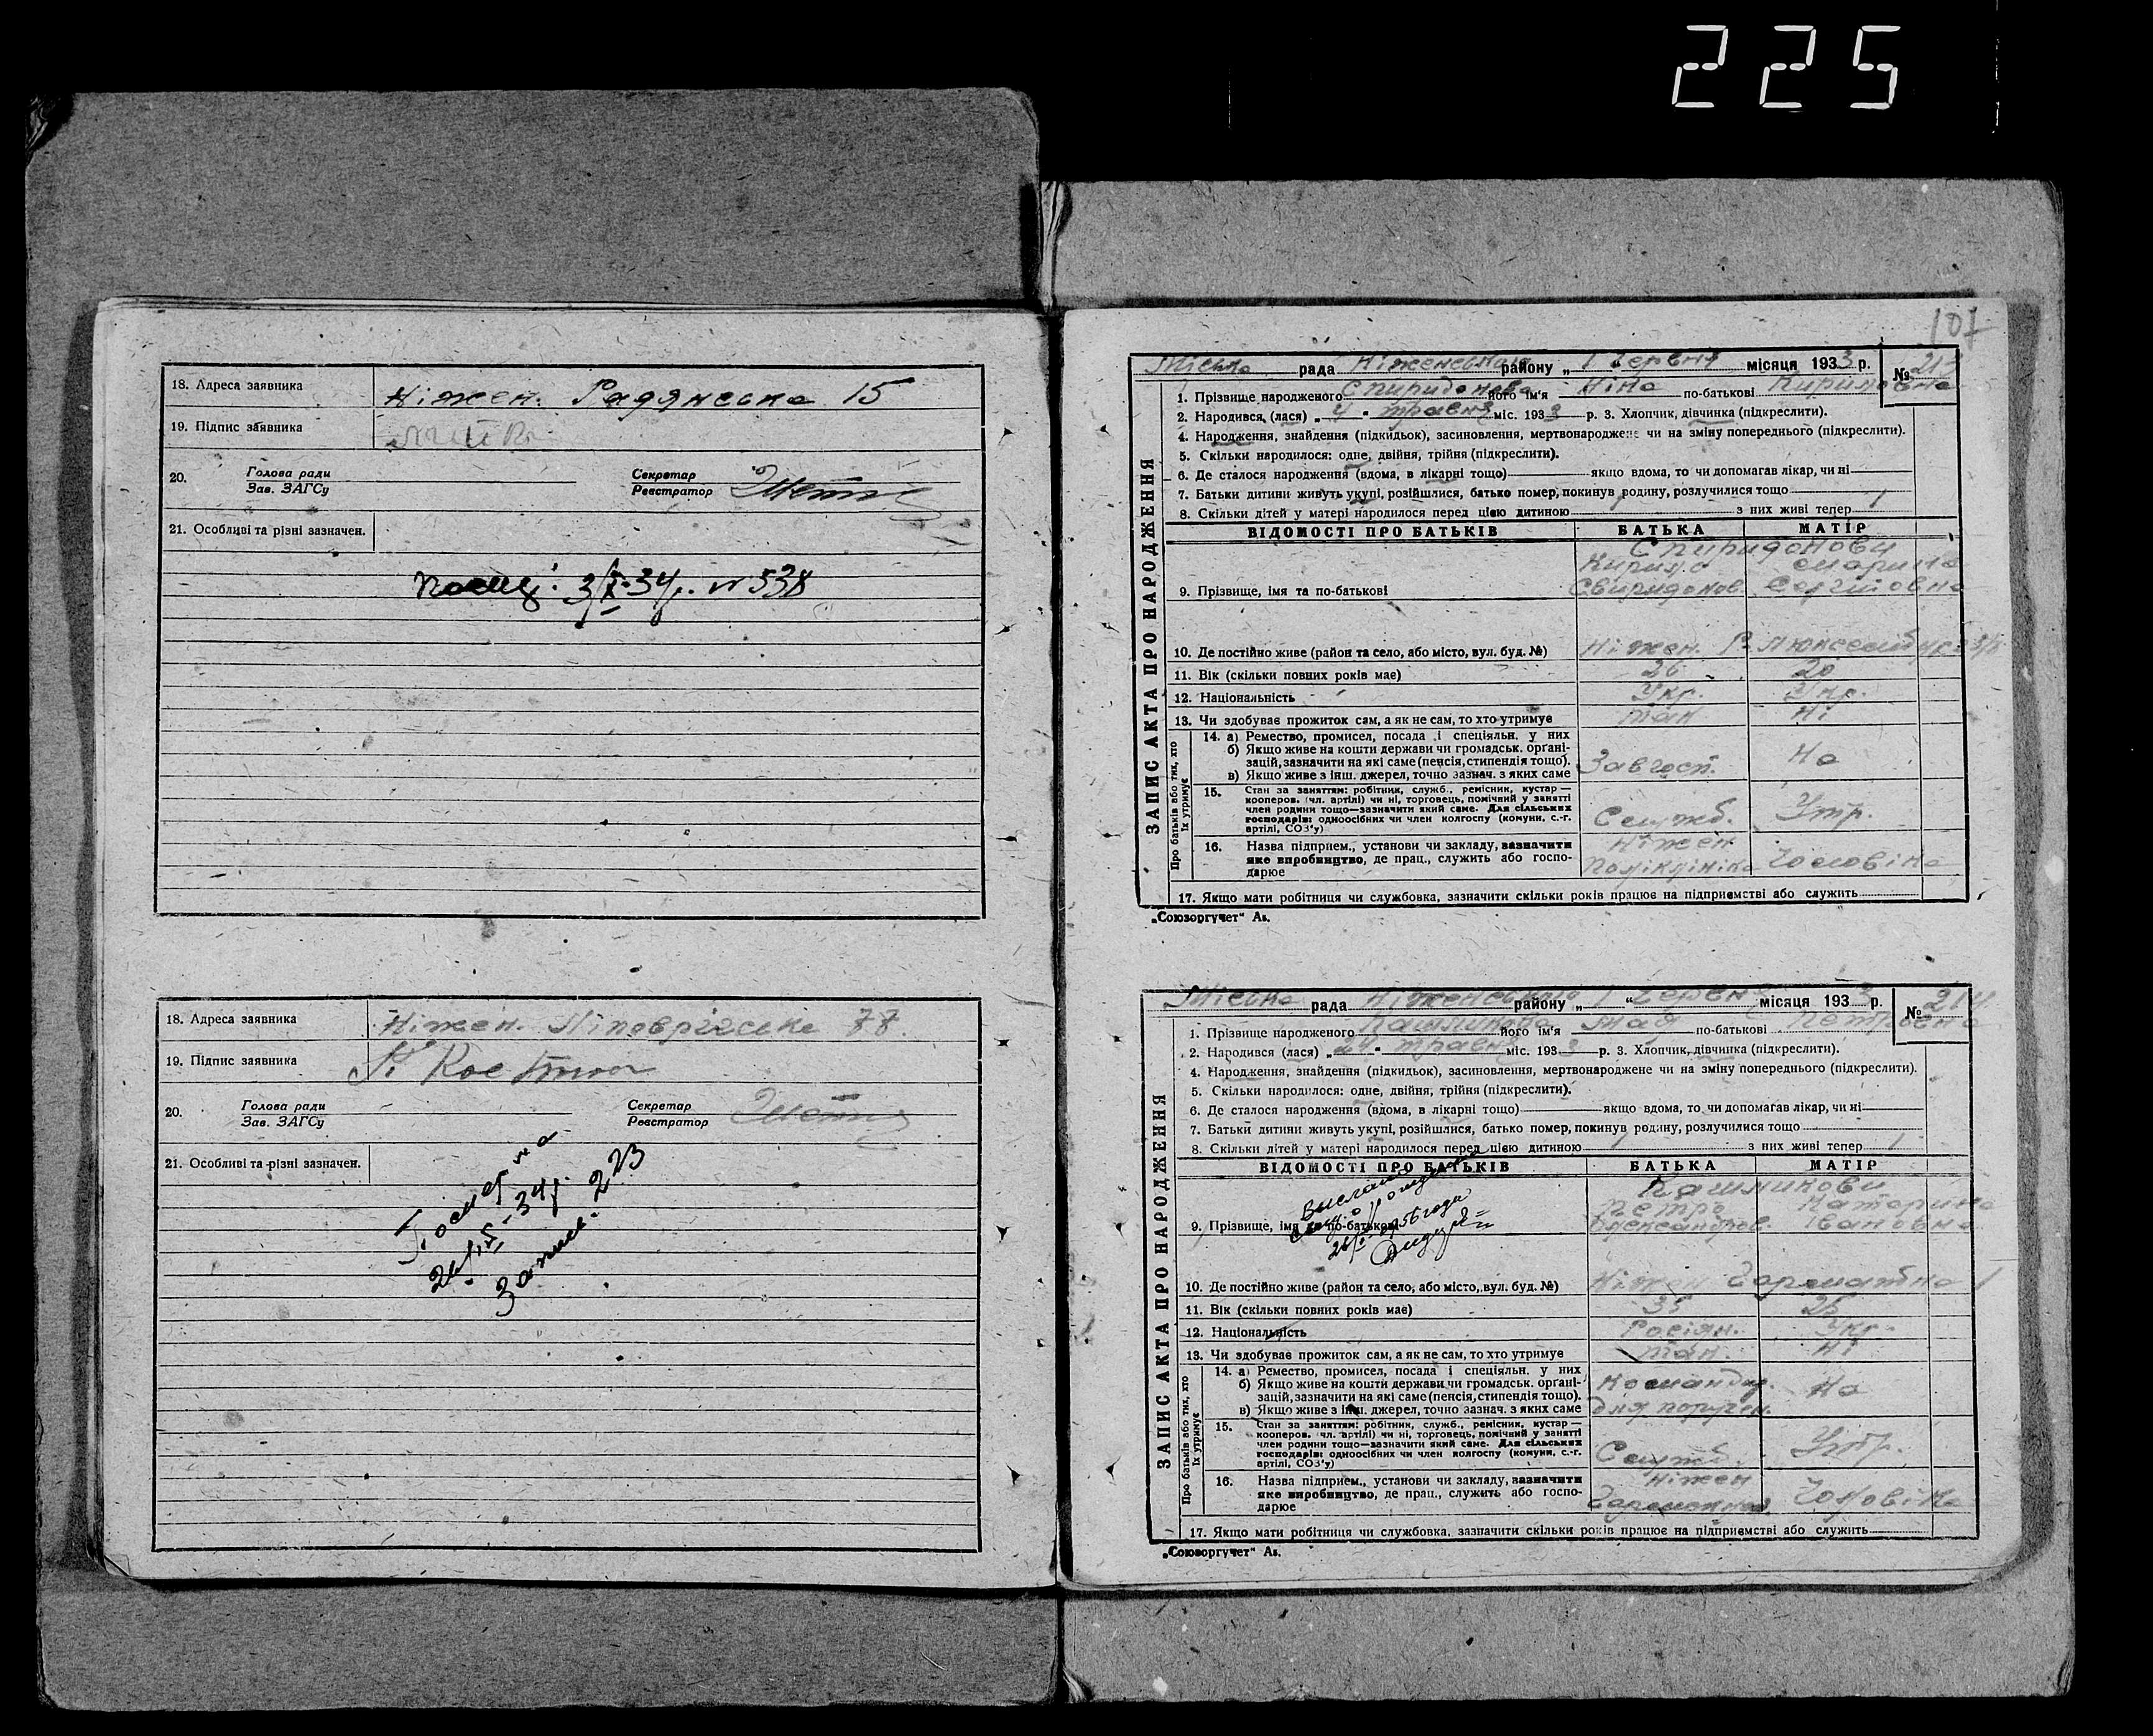 225
18. Адреса заявника
Ніжен. Радянська 15
19. Підпис заявника
20. Голова ради
Зав. ЗАГСу
Секретар
Реєстратор
21. Особливі та різні зазначен.
3/X-34р. № 538
18. Адреса заявника
Ніжен. 77
19. Підпис заявника
20. Голова ради
Зав. ЗАГСу
Секретар
Реєстратор
21. Особливі та різні зазначен.
-34р.
223
101
ЗАПИС АКТА ПРО НАРОДЖЕННЯ
Міська рада Ніженського району „ 1 “ червня місяця 1933 р. №
1. Прізвище народженого Спиридонова його ім'я Ніна по-батькові Кирилівна
2. Народився (лася) „ 4 “ травня міс. 1933 р. 3. Хлопчик, дівчинка (підкреслити).
4. Народження, знайдення (підкидьок), засиновлення, мертвонароджене чи на зміну попереднього (підкреслити).
5. Скільки народилося: одне, двійня, трійня (підкреслити).
6. Де сталося народження (вдома, в лікарні тощо) якщо вдома, то чи допомагав лікар, чи ні
7. Батьки дитини живуть укупі, розійшлися, батько помер, покинув родину, розлучилися тощо
8. Скільки дітей у матері народилося перед цією дитиною з них живі тепер
ВІДОМОСТІ ПРО БАТЬКІВ БАТЬКА МАТІР
Спиридонови
9. Прізвище, імя та по-батькові
Сергіївна
10. Де постійно живе (район та село, або місто, вул. буд. №) Ніжен. Р. Люксембург
11. Вік (скільки повних років має) 26 20
12. Національність Укр. Укр.
13. Чи здобуває прожиток сам, а як не сам, то хто утримує так ні
Про батьків або тих, хто їх утримує
14. а) Ремество, промисел, посада і спеціяльн. у них
б) Якщо живе на кошти держави чи громадськ. органі-
зацій, зазначити на які саме (пенсія, стипендія тощо).
в) Якщо живе з інш. джерел, точно зазнач. з яких саме
Завгосп. На
15. Стан за заняттям: робітник, служб., ремісник, кустар —
кооперов. (чл. артілі) чи ні, торговець, помічний у занятті
член родини тощо—зазначити який саме. Для сільських
господарів: одноосібних чи член колгоспу (комуни, с.-г.
артілі, СОЗ'у)
Служб. Утр.
16. Назва підприєм., установи чи закладу, зазначити
яке виробництво, де прац., служить або госпо-
дарює
Ніжен
Полікрініка Чоловіка
17. Якщо мати робітниця чи службовка, зазначити скільки років працює на підприємстві або служить
„Союзоргучет“ Ав.
ЗАПИС АКТА ПРО НАРОДЖЕННЯ
Міська рада Ніженського району „ 1 “ червня місяця 1933 р. № 214
1. Прізвище народженого Кашликова його ім'я Мая по-батькові Петровна
2. Народився (лася) „ 24 “ травня міс. 1933 р. 3. Хлопчик, дівчинка (підкреслити).
4. Народження, знайдення (підкидьок), засиновлення, мертвонароджене чи на зміну попереднього (підкреслити).
5. Скільки народилося: одне, двійня, трійня (підкреслити).
6. Де сталося народження (вдома, в лікарні тощо) якщо вдома, то чи допомагав лікар, чи ні
7. Батьки дитини живуть укупі, розійшлися, батько помер, покинув родину, розлучилися тощо
8. Скільки дітей у матері народилося перед цією дитиною з них живі тепер
ВІДОМОСТІ ПРО БАТЬКІВ БАТЬКА МАТІР
Кашликови
Петро Катерина
9. Прізвище, імя та по-батькові Олександров. Івановна
1956 года
10. Де постійно живе (район та село, або місто, вул. буд. №) Ніжен Гарматна 1
11. Вік (скільки повних років має) 35 25
12. Національність Росіян. Укр.
13. Чи здобуває прожиток сам, а як не сам, то хто утримує так. ні
Про батьків або тих, хто їх утримує
14. а) Ремество, промисел, посада і спеціяльн. у них
б) Якщо живе на кошти держави чи громадськ. органі-
зацій, зазначити на які саме (пенсія, стипендія тощо).
в) Якщо живе з інш. джерел, точно зазнач. з яких саме
Командир. На
для поручен.
15. Стан за заняттям: робітник, служб., ремісник, кустар —
кооперов. чл. артілі) чи ні, торговець, помічний у занятті
член родини тощо—зазначити який саме. Для сільських
господарів: одноосібних чи член колгоспу (комуни, с.-г.
артілі, СОЗ'у)
Служб. Утр.
16. Назва підприєм., установи чи закладу, зазначити
яке виробництво, де прац., служить або госпо-
дарює
Ніжен
Чоловіка
17. Якщо мати робітниця чи службовка, зазначити скільки років працює на підприємстві або служить
„Союзоргучет“ Ав.